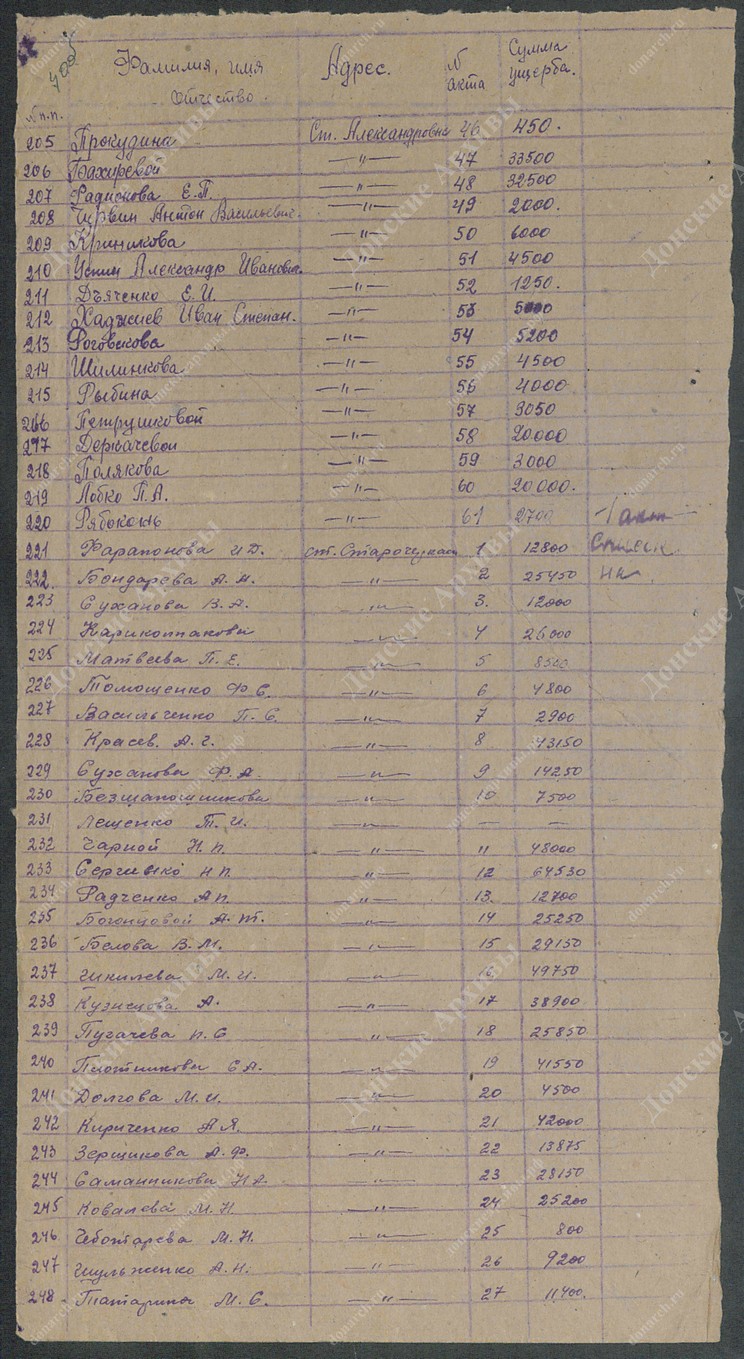 Фамилия, имя отчество. Адрес. N акта Сумма ущерба.
N п.п.
205 Прокудина Ст. Александровна 46 450.
206 Бахиревой —"— 47 33500
207 Радионова Е.П. —"— 48 32500
208 Антон Васильевич. —"— 49 2000.
209 —"— 50 6000
210 Александр Иванович. —"— 51 4500
211 Дъяченко Е.И. —"— 52 1250.
212 Хаджиев Иван Степан. —"— 53 5000
213 —"— 54 5200
214 Шилинкова —"— 55 4500
215 Рыбина —"— 56 4000
216 Петрушковой —"— 57 3050
217 Деркачевой —"— 58 20000
218 Полякова —"— 59 3000
219 Лобко П.А. —"— 60 20000.
220 Рябоконь —"— 61 2700
221 Фарапонова И.Д. 1 12800
222 Бондарева А.Н. —"— 2 25450
223 Суханова В.А. —"— 3. 12000
224 —"— 4 26000
225 Матвеева П.Е. —"— 5 8500
226 Томощенко Ф.С. —"— 6 4800
227 Васильченко П.С. —"— 7 2900
228 Красев. А.Г. —"— 8 43150
229 Суханова Ф.А. —"— 9 14250
230 —"— 10 7500
231 Лещенко Т.И. —"— — —
232 Чарной Н.П. —"— 11 48000
233 Н.П. —"— 12 64530
234 Радченко А.П. —"— 13. 12700
235 —"— 14 25250
236 Белова В.М. —"— 15 29150
237 М.И. —"— 16 49750
238 Кузнецова. А. —"— 17 38900
239 Пугачева П.С —"— 18 25850
240 Плотникова Е.А. —"— 19 41550
241 Долгова М.И. —"— 20 4500
242 Кириченко А.Я. —"— 21 42000
243 Зерщикова А.Ф. —"— 22 13875
244 Саманникова Н.А. —"— 23 28150
245 Ковалева М.Н. —"— 24 25200
246 Чеботарева М.Н. —"— 25 800
247 Шульженко А.Н. —"— 26 9200
248 Татарина М.С. —"— 27 11400.
Донские Архивы
donarch.ru